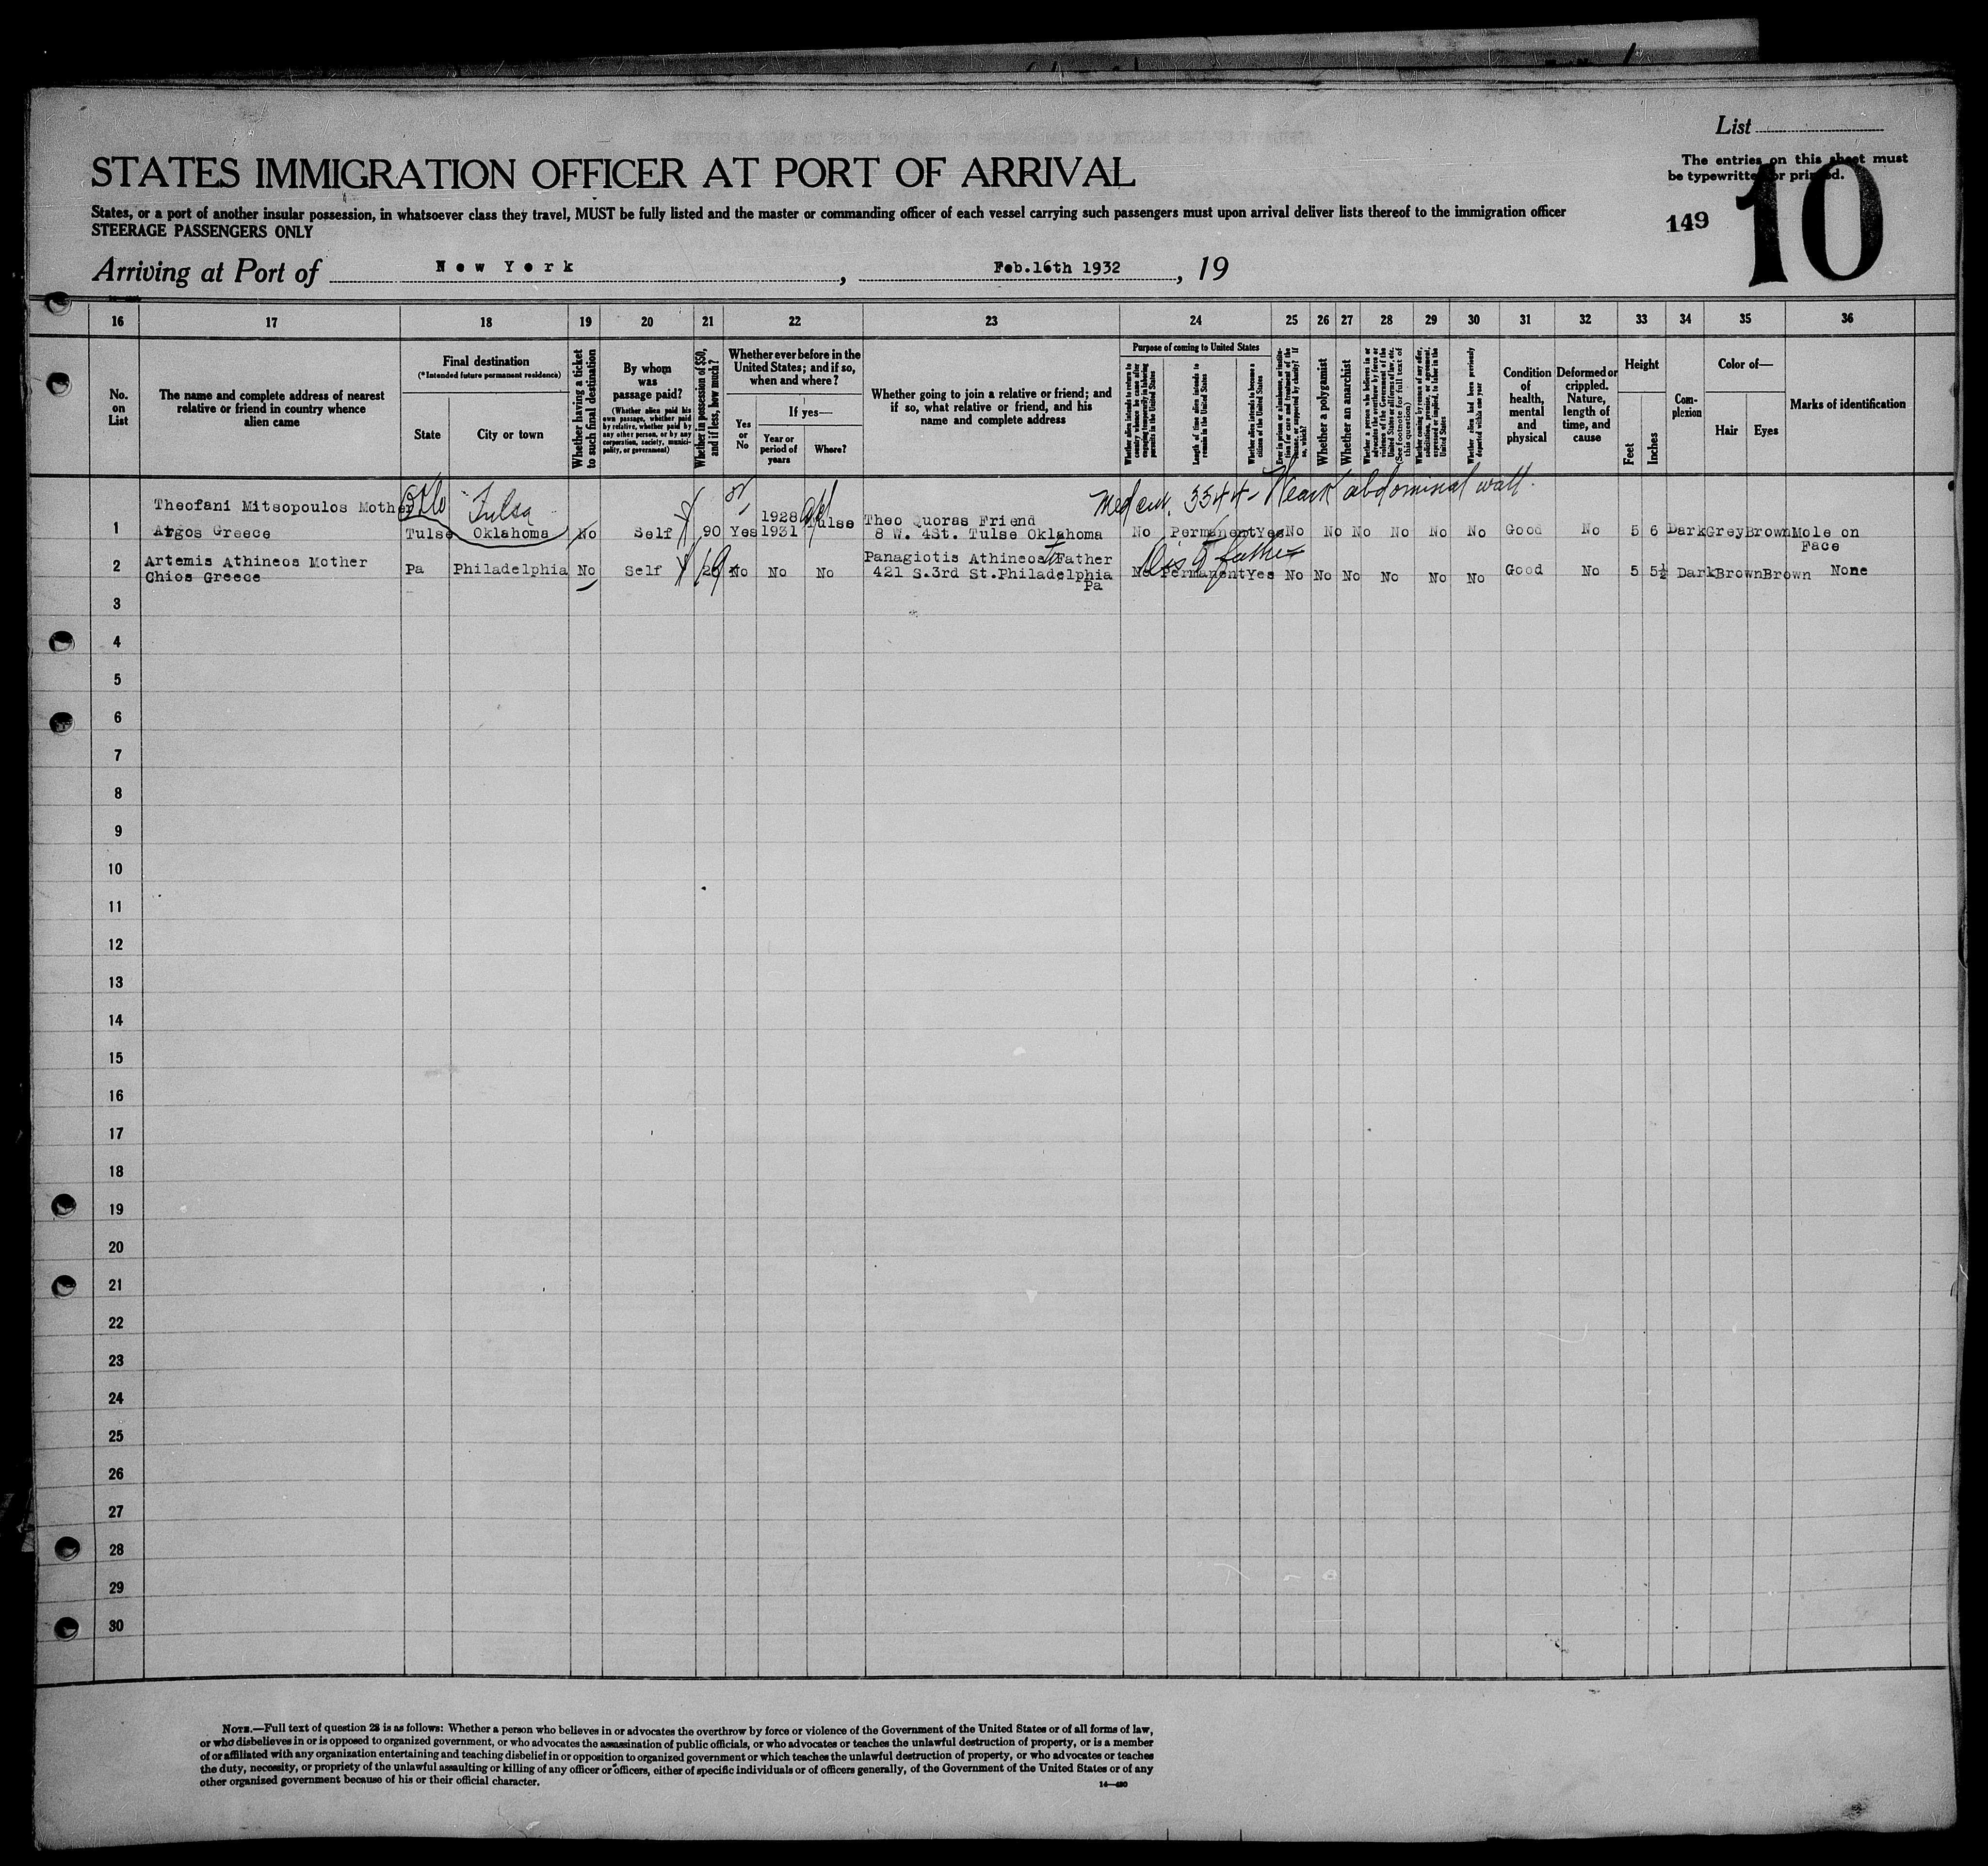 List
The entries on this sheet must
be typewritten or printed.
149
10
STATES IMMIGRATION OFFICER AT PORT OF ARRIVAL
States, or a port of another insular possession, in whatsoever class they travel, MUST be fully listed and the master or commanding officer of each vessel carrying such passengers must upon arrival deliver lists thereof to the immigration officer
STEERAGE PASSENGERS ONLY
Arriving at Port of New York, Feb.16th 1932, 19
16 17 18 19 20 21 22 23 24 25 26 27 28 29 30 31 32 33 34 35 36
No.
on
List
The name and complete address of nearest
relative or friend in country whence
alien came
Final destination
(*Intended future permanent residence)
State
City or town
Whether having a ticket
to such final destination
By whom
was
passage paid?
(Whether alien paid his
own passage, whether paid
by relative, whether paid by
any other person, or by any
corporation, society, munici-
pality, or government)
Whether in possession of $50,
and if less, how much?
Whether ever before in the
United States; and if so,
when and where?
Yes
or
No
If yes—
Year or
period of
years
Where?
Whether going to join a relative or friend; and
if so, what relative or friend, and his
name and complete address
Purpose of coming to United States
Whether alien intends to return to
country whence he came after
engaging temporarily in laboring
pursuits in the United States
Length of time alien intends to
remain in the United States
Whether alien intends to become a
citizen of the United States
Ever in prison or almshouse, or institu-
tion for care and treatment of the
insane, or supported by charity? If
so, which?
Whether a polygamist
Whether an anarchist
Whether a person who believes in or
advocates the overthrow by force or
violence of the Government of the
United States or all forms of law, etc.
(See footnote for full text of
this question)
Whether coming by reason of any offer,
solicitation, promise, or agreement,
expressed or implied, to labor in the
United States
Whether alien had been previously
deported within one year
Condition
of
health,
mental
and
physical
Deformed or
crippled.
Nature,
length of
time, and
cause
Height
Feet
Inches
Com-
plexion
Color of—
Hair
Eyes
Marks of identification
Med cert. 3544 - Weak abdominal wall.
Theofani Mitsopoulos Mother Okla Tulsa
1 Argos Greece Tulse Oklahoma No Self 90 Yes 1928 1931 Tulse Theo Quoras Friend
8 W. 4St. Tulse Oklahoma No Permanent Yes No No No No No No Good No 5 6 Dark Grey Brown Mole on
Face
2 Artemis Athineos Mother
Chios Greece Pa Philadelphia No Self No No No Panagiotis Athineos Father
421 S.3rd St.Philadelphia
Pa
No Permanent Yes No No No No No No Good No 5 5½ Dark Brown Brown None
3
4
5
6
7
8
9
10
11
12
13
14
15
16
17
18
19
20
21
22
23
24
25
26
27
28
29
30
NOTE.—Full text of question 28 is as follows: Whether a person who believes in or advocates the overthrow by force or violence of the Government of the United States or of all forms of law,
or who disbelieves in or is opposed to organized government, or who advocates the assassination of public officials, or who advocates or teaches the unlawful destruction of property, or is a member
of or affiliated with any organization entertaining and teaching disbelief in or opposition to organized government or which teaches the unlawful destruction of property, or who advocates or teaches
the duty, necessity, or propriety of the unlawful assaulting or killing of any officer or officers, either of specific individuals or of officers generally, of the Government of the United States or of any
other organized government because of his or their official character.
14—490